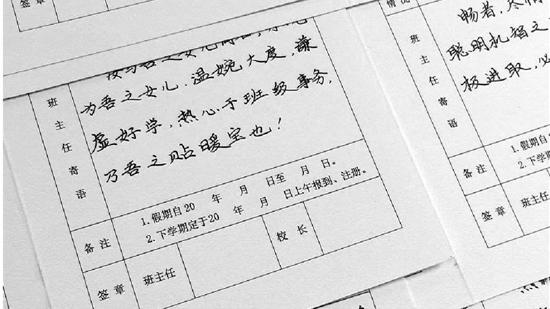 情况
班主任寄语
为吾之女儿.温婉大度,谦
虚好学,热心于班级事务,
乃吾之贴暖宝也!
备注
1.假期自20 年 月 日至 月 日。
2.下学期定于20 年 月 日上午报到、注册。
签章
班主任
校长
畅者,
聪明机智之
极进取,必
班主任寄语
备注
签章